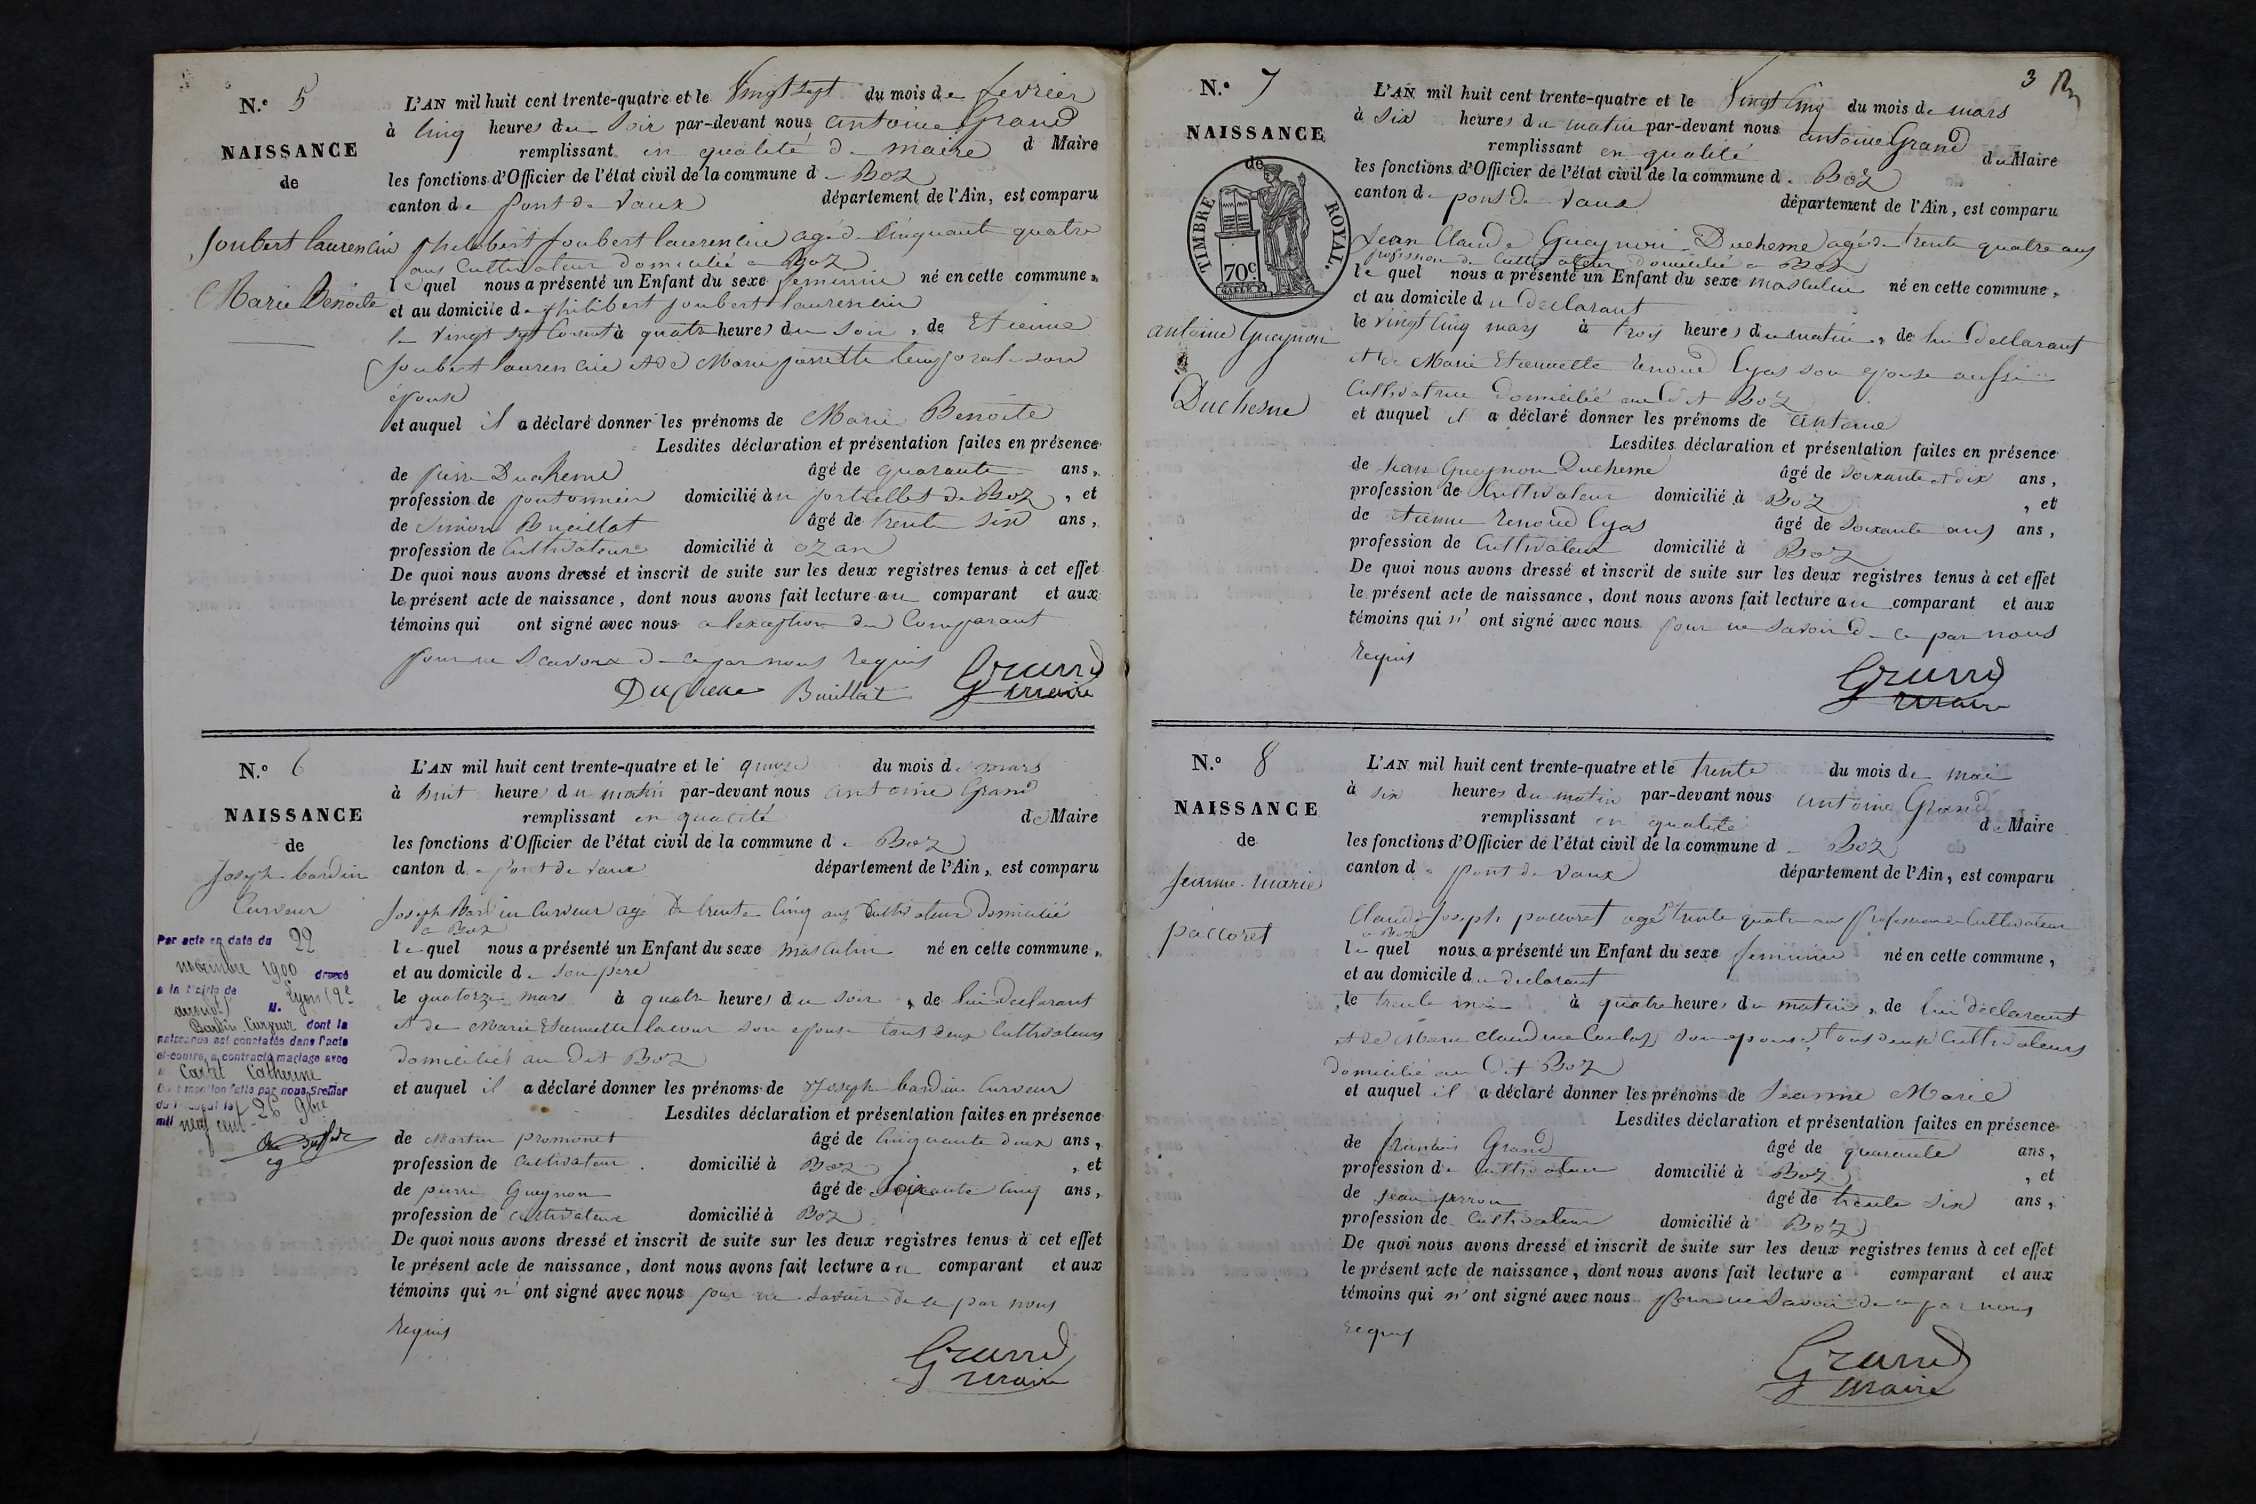 N.º 5
NAISSANCE
de
Joubert laurencin
Marie Benoite
L'AN mil huit cent trente-quatre et le Vingt sept du mois de fevrier
à Cinq heures du Soir par-devant nous antoine Grand
remplissant en qualité de maire d Maire
les fonctions d'Officier de l'état civil de la commune de Boz
canton de pont de Vaux département de l'Ain, est comparu
philibert joubert laurencin agé de Cinquante quatre
ans Cultivateur domicilié a Boz
le quel nous a présenté un Enfant du sexe feminin né en cette commune,
et au domicile de philibert joubert laurencin
le Vingt sept Courant à quatre heures du soir, de Etienne
joubert laurencin et de Marie son
épouse
et auquel il a déclaré donner les prénoms de Marie Benoite
Lesdites déclaration et présentation faites en présence
de pierre Duchesne âgé de quarante ans,
profession de pontonnier domicilié à de Boz, et
de Simon Bueillat âgé de trente six ans,
profession de Cultivateur domicilié à ozan
De quoi nous avons dressé et inscrit de suite sur les deux registres tenus à cet effet
le présent acte de naissance, dont nous avons fait lecture au comparant et aux
témoins qui ont signé avec nous a lexception du Comparant
pour ne Scavoir de ce par nous requis
Duchene Buillat Grand
maire
N.º 6
NAISSANCE
de
Joseph bardin
Curveur
Par acte en date du 22
novembre 1900 dressé
à la Mairie de Lyon (2e
arrondt) M.
Bardin Curveur dont la
naissance est constatée dans l'acte
ci-contre, a contracté mariage avec
Cartet Catherine
Dont mention faite par nous Greffier
du Tribunal le 26 9bre
mil neuf cent
L'AN mil huit cent trente-quatre et le quinze du mois de mars
à huit heures du matin par-devant nous antoine Grand
remplissant en qualité de Maire
les fonctions d'Officier de l'état civil de la commune de Boz
canton de Pont de Vaux département de l'Ain, est comparu
Joseph Bardin Curveur agé de trente Cinq ans Cultivateur domicilié
a Boz
le quel nous a présenté un Enfant du sexe masculin né en cette commune,
et au domicile de son pere
le quatorze mars à quatre heures du soir, de lui declarant
et de Marie Etiennette lacour son epouse tous deux Cultivateurs
domiciliés au dit Boz
et auquel il a déclaré donner les prénoms de Joseph bardin Curveur
Lesdites déclaration et présentation faites en présence
de Martin promonet âgé de Cinquante deux ans,
profession de Cultivateur domicilié à Boz, et
de pierre Gueynon âgé de Soixante Cinq ans,
profession de Cultivateur domicilié à Boz
De quoi nous avons dressé et inscrit de suite sur les deux registres tenus à cet effet
le présent acte de naissance, dont nous avons fait lecture au comparant et aux
témoins qui n' ont signé avec nous pour ne Savoir de ce par nous
requis
Grand
maire
3
N.º 7
NAISSANCE
de
TIMBRE ROYAL.
70c.
antoine Gueynon
Duchesne
L'AN mil huit cent trente-quatre et le Vingt Cinq du mois de mars
à Six heures du matin par-devant nous antoine Grand
remplissant en qualité du Maire
les fonctions d'Officier de l'état civil de la commune de Boz
canton de pont de Vaux département de l'Ain, est comparu
Jean Claude Gueynon Duchesne agé de trente quatre ans
profession de Cultivateur Domicilié a Boz
le quel nous a présenté un Enfant du sexe masculin né en cette commune,
et au domicile du declarant
le Vingt Cinq mars à trois heures du matin, de lui declarant
et de Marie Etiennette renoud lyas son epouse aussi
Cultivatrice domicilié au dit Boz
et auquel il a déclaré donner les prénoms de antoine
Lesdites déclaration et présentation faites en présence
de Jean Gueynon Duchesne âgé de Soixante et dix ans,
profession de Cultivateur domicilié à Boz, et
de Etienne renoud lyas âgé de Soixante ans ans,
profession de Cultivateur domicilié à Boz
De quoi nous avons dressé et inscrit de suite sur les deux registres tenus à cet effet
le présent acte de naissance, dont nous avons fait lecture au comparant et aux
témoins qui n' ont signé avec nous pour ne savoir de ce par nous
requis
Grand
maire
N.º 8
NAISSANCE
de
Jeanne marie
paccoret
L'AN mil huit cent trente-quatre et le trente du mois de mai
à six heures du matin par-devant nous antoine Grand
remplissant en qualité de Maire
les fonctions d'Officier de l'état civil de la commune de Boz
canton de pont de Vaux département de l'Ain, est comparu
Claude Joseph paccoret agé trente quatre ans profession de Cultivateur
a Boz
le quel nous a présenté un Enfant du sexe feminin né en cette commune,
et au domicile du declarant
le trente mai à quatre heures du matin, de lui déclarant
et de Marie Claudine son epouse tous deux Cultivateurs
domicilié au dit Boz
et auquel il a déclaré donner les prénoms de Jeanne Marie
Lesdites déclaration et présentation faites en présence
de francois Grand âgé de quarante ans,
profession de Cultivateur domicilié à Boz, et
de Jean perron âgé de trente six ans,
profession de Cultivateur domicilié à Boz
De quoi nous avons dressé et inscrit de suite sur les deux registres tenus à cet effet
le présent acte de naissance, dont nous avons fait lecture a comparant et aux
témoins qui n' ont signé avec nous pour ne Savoir de ce par nous
requis
Grand
maire